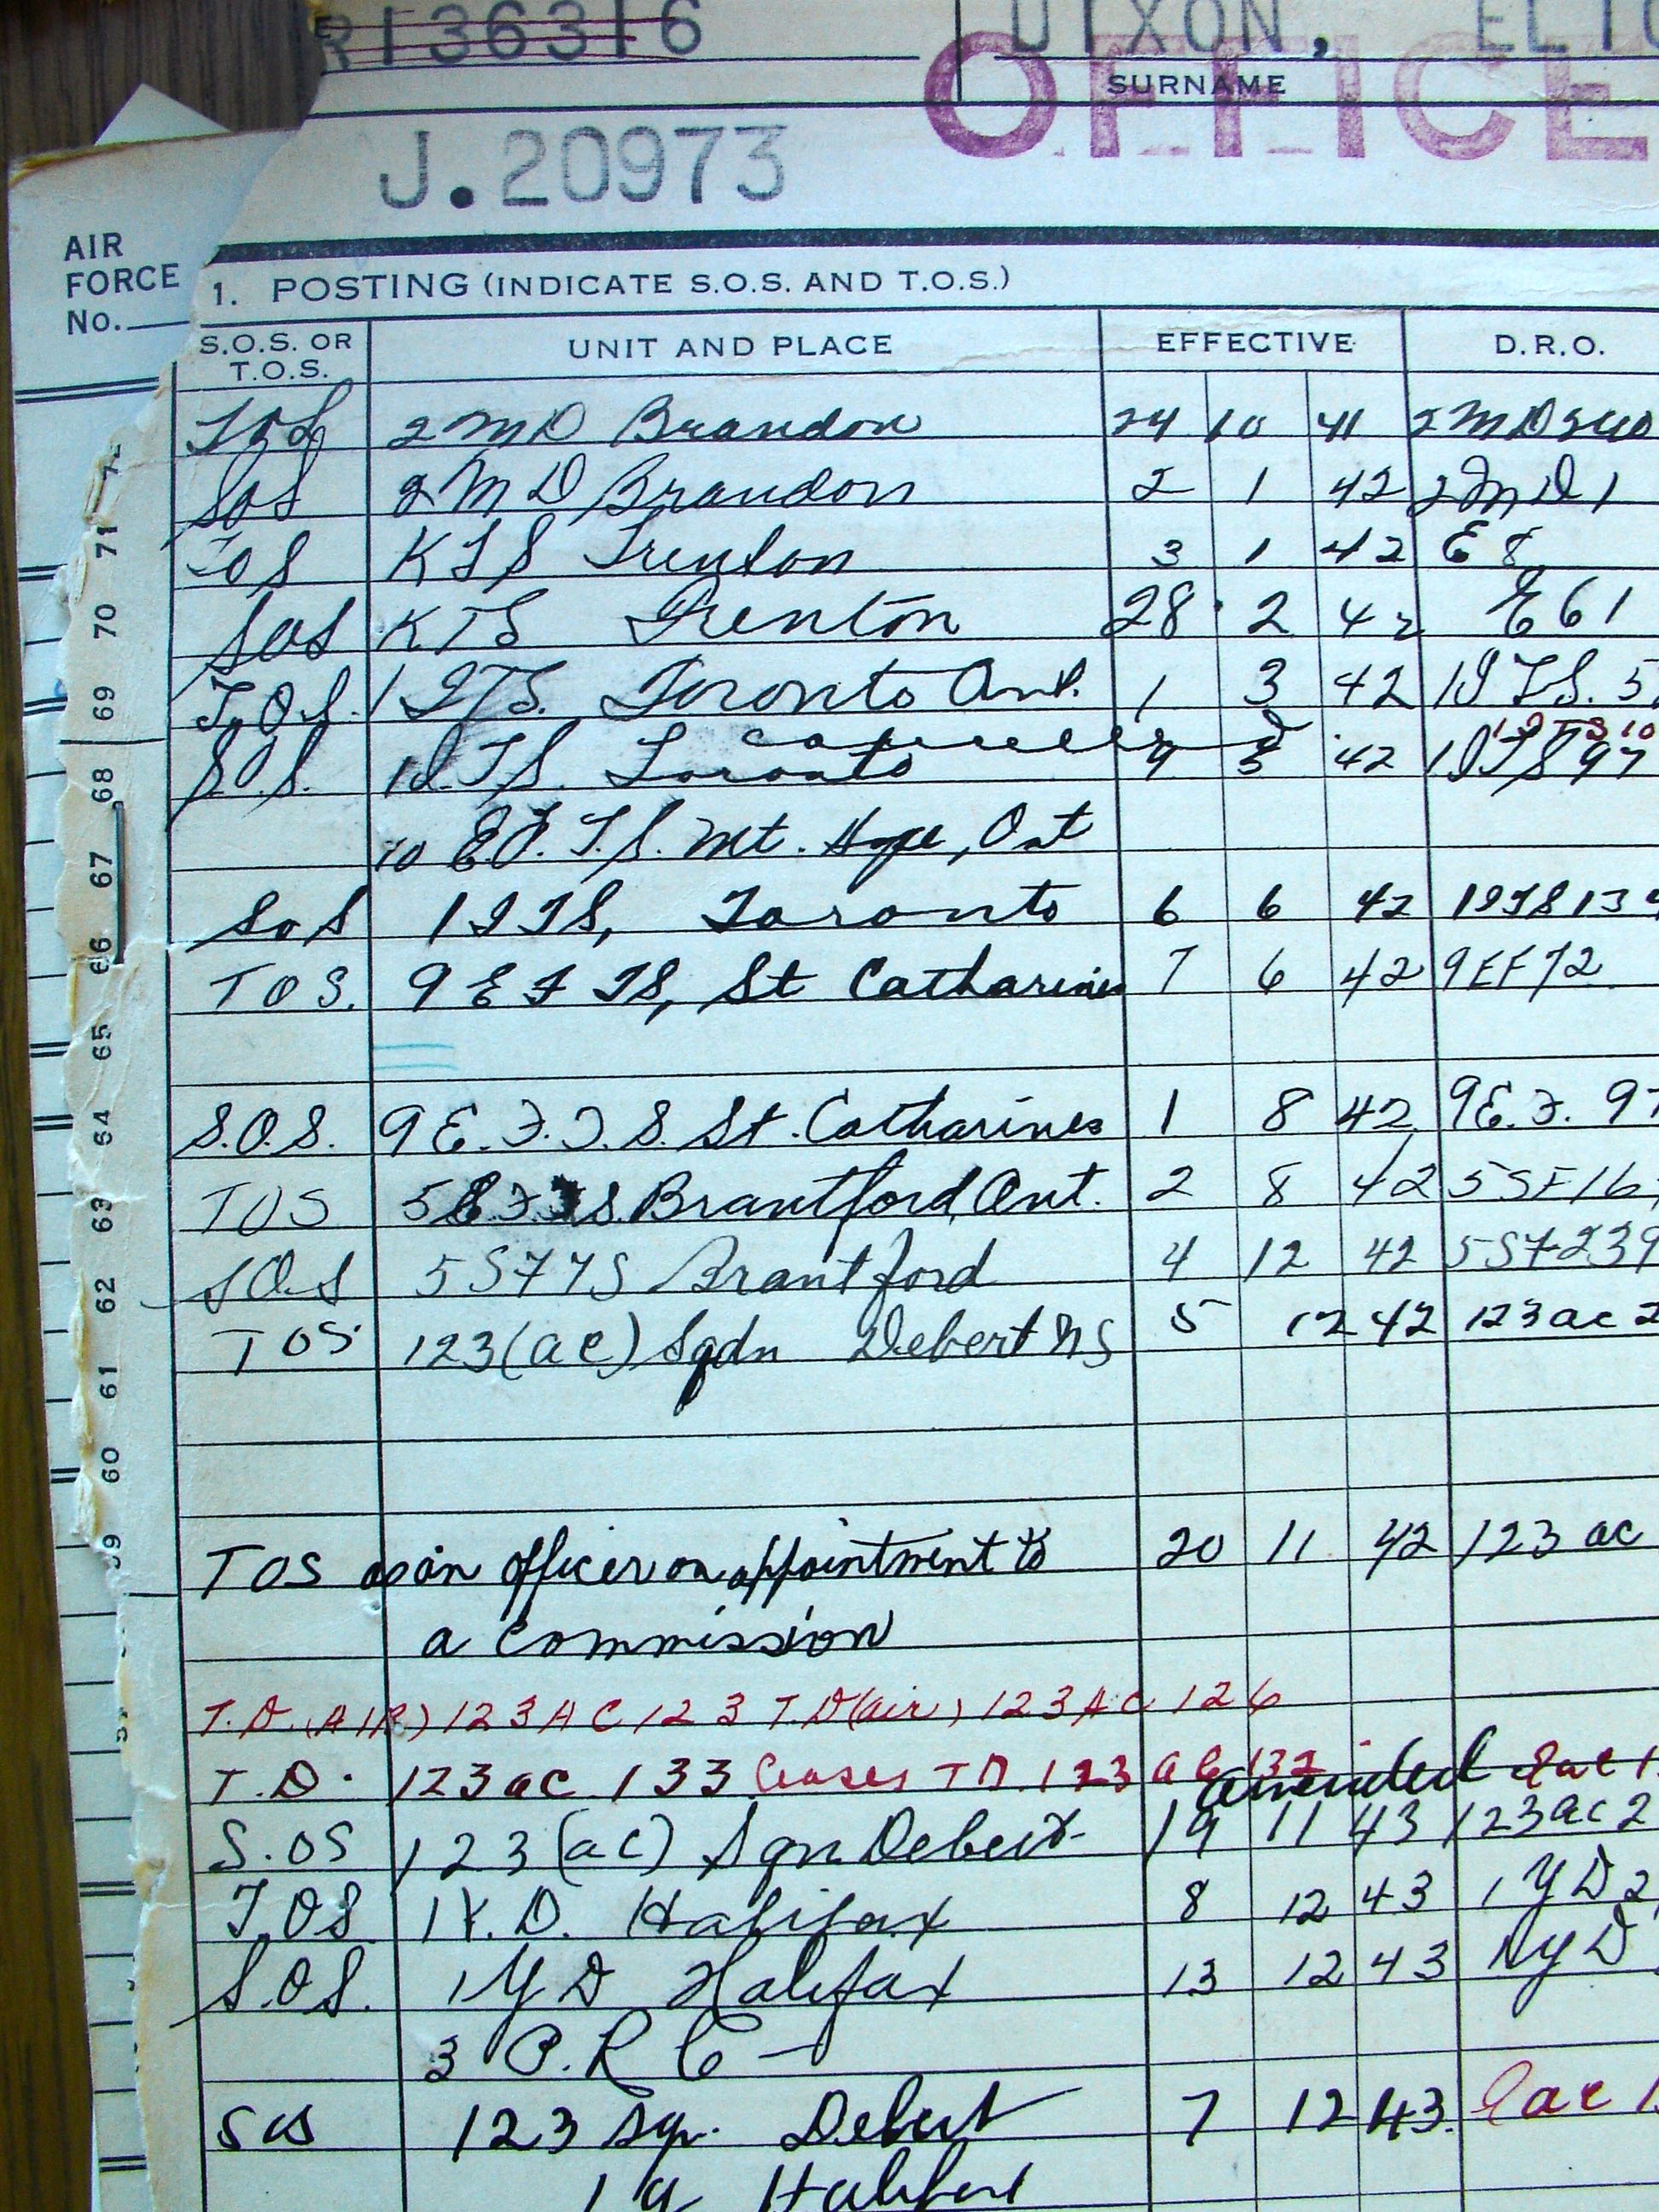 R136316 DIXON,
SURNAME
OFFICE
J.20973
AIR
FORCE
No.
1. POSTING (INDICATE S.O.S. AND T.O.S.)
S.O.S. OR T.O.S. UNIT AND PLACE EFFECTIVE D.R.O.
TOS 2 M D Brandon 24 10 41 2 M D
SOS 2 M D Brandon 2 1 42 2 M D 1
TOS KTS Trenton 3 1 42 E 8
SOS KTS Trenton 28 2 42 E 61
T.O.S. 1 ITS. Toronto Ont. 1 3 42 1 ITS. 5
cancelled
S.O.S. 1 I.T.S. Toronto 9 5 42 1 ITS 97
to E.F.T.S. Mt. Hope, Ont
SOS 1 ITS, Toronto 6 6 42 1 ITS 134
TOS. 9 EFTS, St Catharines 7 6 42 9EF72
S.O.S. 9 E.F.T.S. St. Catharines 1 8 42 9E.F. 97
TOS Brantford, Ont. 2 8 42 5SF16
SOS 5SFTS Brantford 4 12 42 5SF239
TOS 123(ac) Sqdn Debert NS 5 12 42 123ac 2
TOS as an officer on appointment to 20 11 42 123 ac
a commission
T.D. (AIR) 123AC 123 T.D(air) 123AC 126
T.D. 123ac 133 Ceases TD. 123ac 132 amended
S.OS 123(ac) Sqn Debert 19 11 43 123ac2
T.OS 1 Y.D. Halifax 8 12 43 1 YD 2
S.O.S. 1 Y D Halifax 13 12 43 1 YD
3 P.R C
SOS 123 Sqn. Debert 7 12 43.
1 Y Halifax
72
71
70
69
68
67
66
65
64
63
62
61
60
59